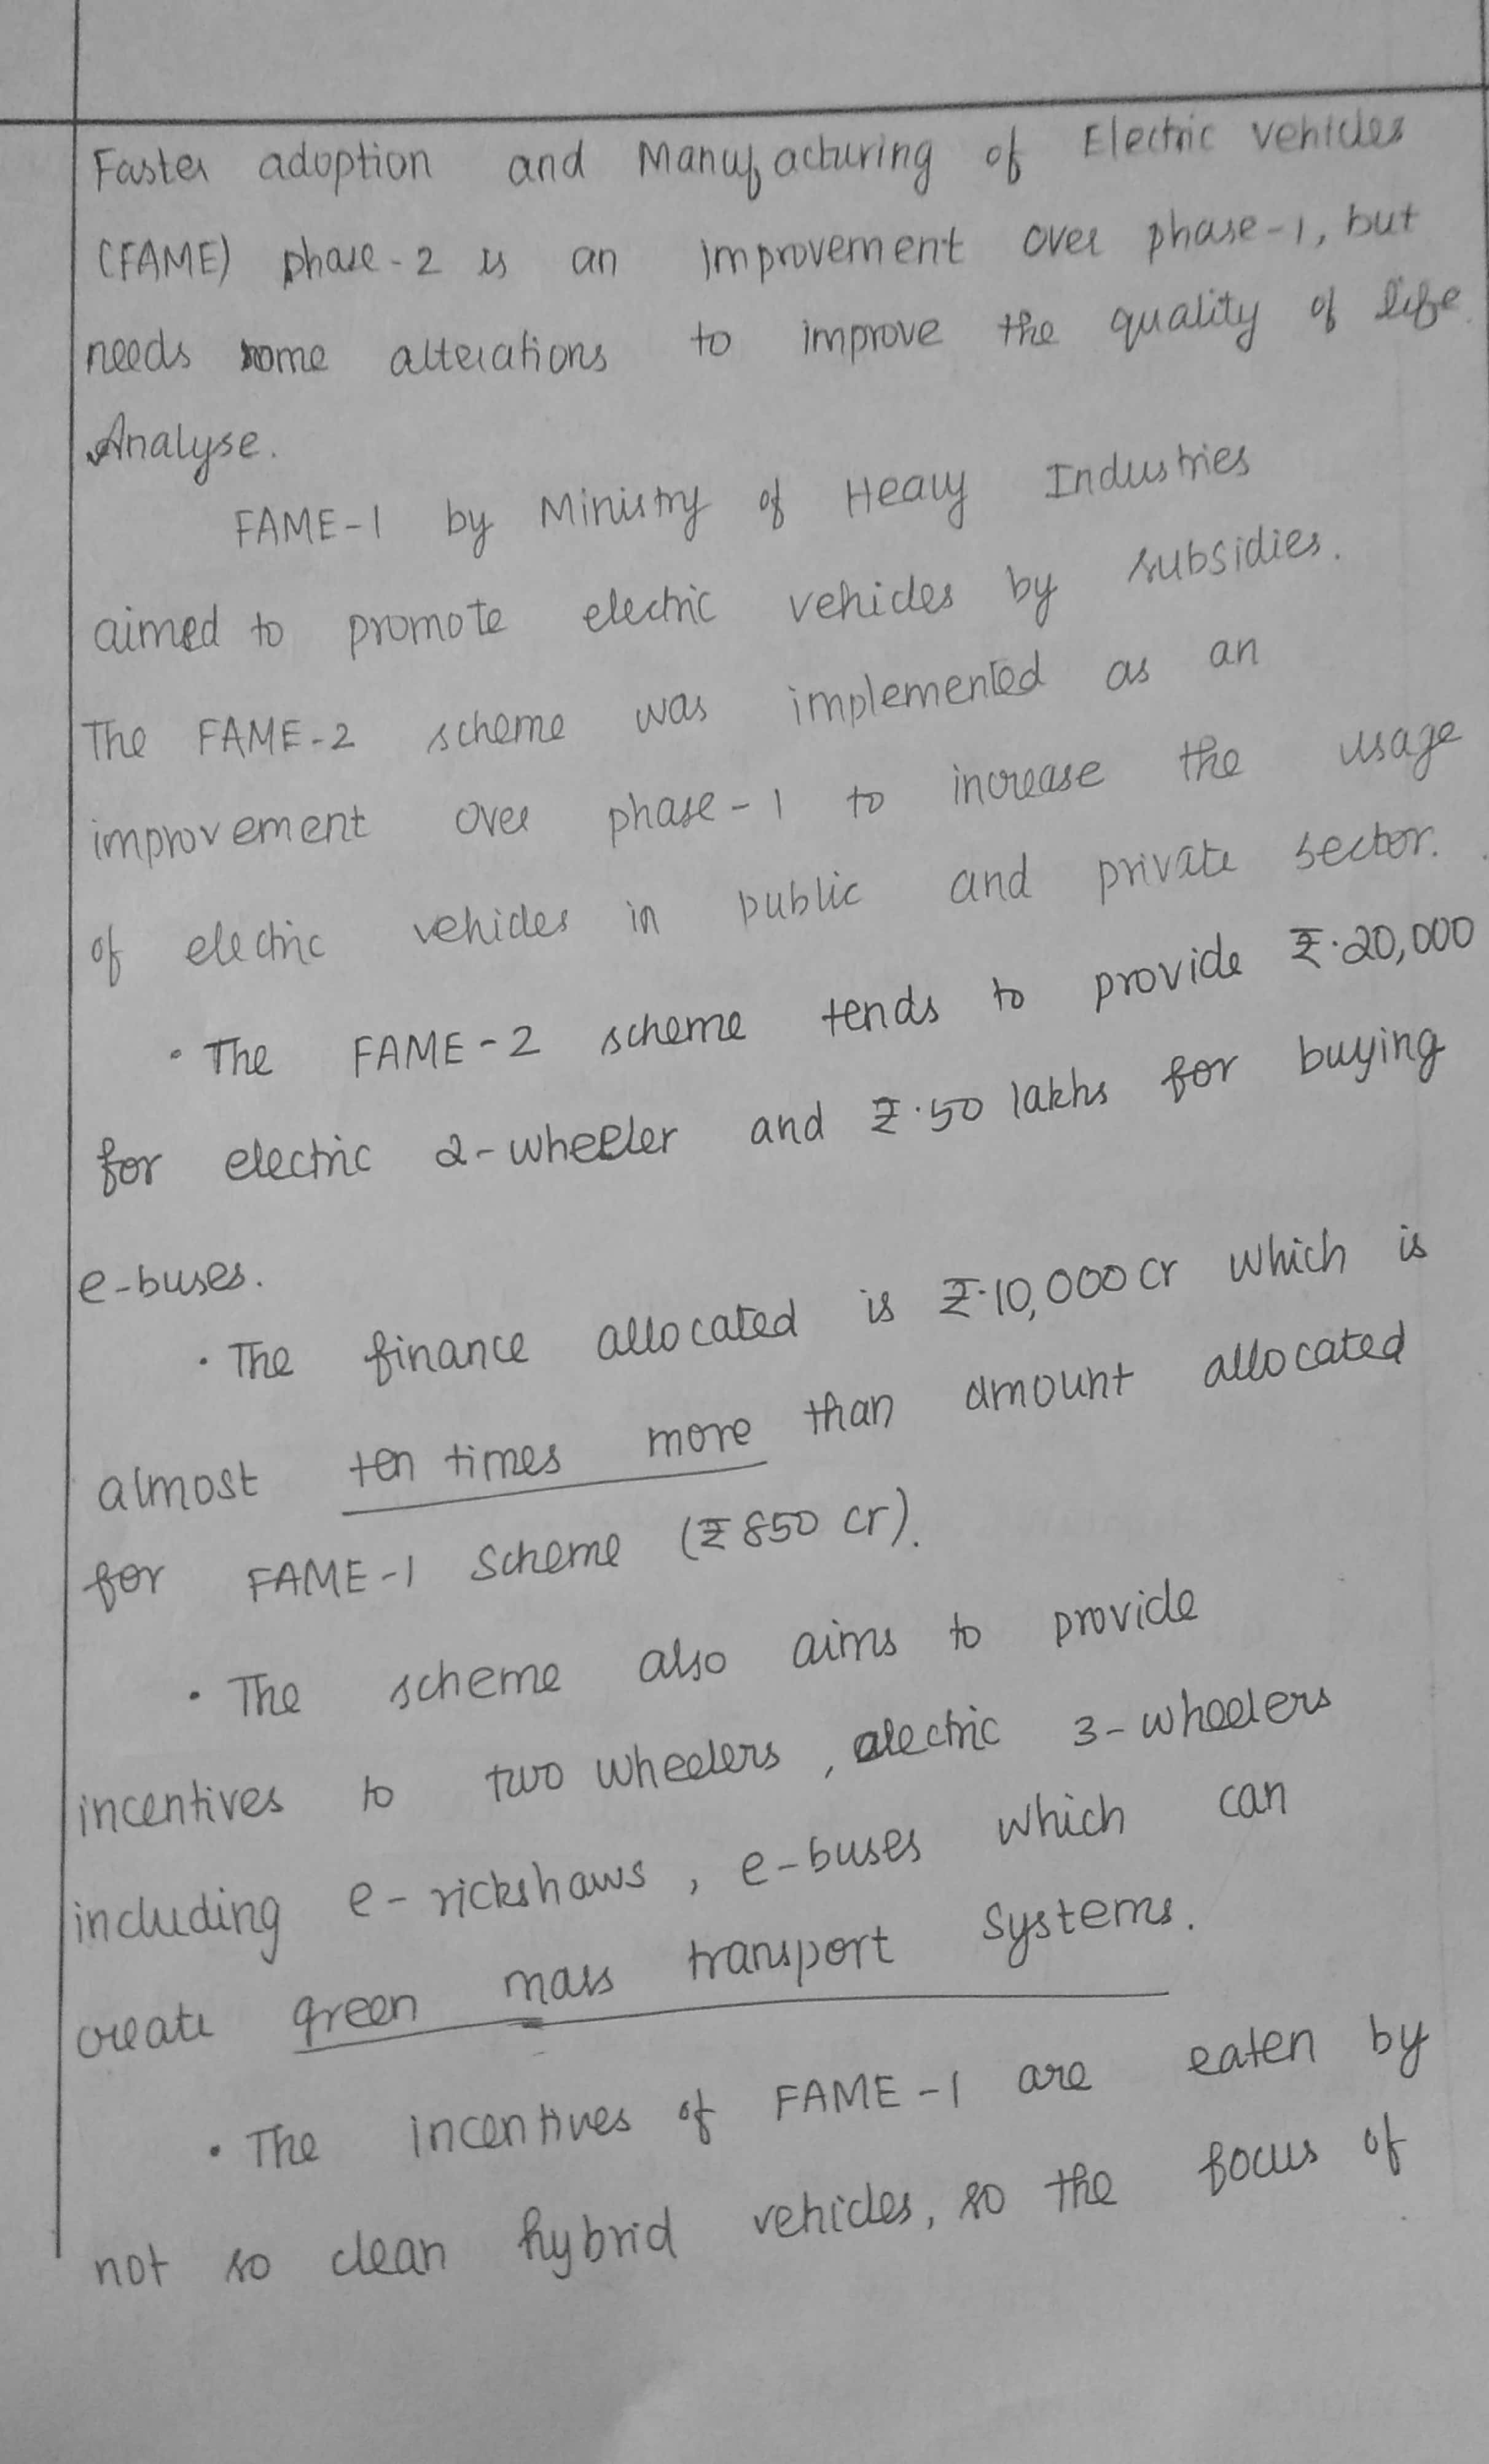 Faster adoption and Manufacturing of Electric vehicles
(FAME) phase-2 is an improvement over phase-1, but
needs some alterations to improve the quality of life.
Analyse.
FAME-1 by Ministry of Heavy Industries
aimed to promote electric vehicles by subsidies.
The FAME-2 scheme was implemented as an
improvement over phase-1 to increase the usage
of electric vehicles in public and private sector.
• The FAME-2 scheme tends to provide ₹.20,000
for electric 2-wheeler and ₹.50 lakhs for buying
e-buses.
• The finance allocated is ₹.10,000 cr which is
almost ten times more than amount allocated
for FAME-1 Scheme (₹850 cr).
• The scheme also aims to provide
incentives to two wheelers, electric 3-wheelers
including e-rickshaws, e-buses which can
create green mass transport systems.
• The incentives of FAME-1 are eaten by
not so clean hybrid vehicles, so the focus of